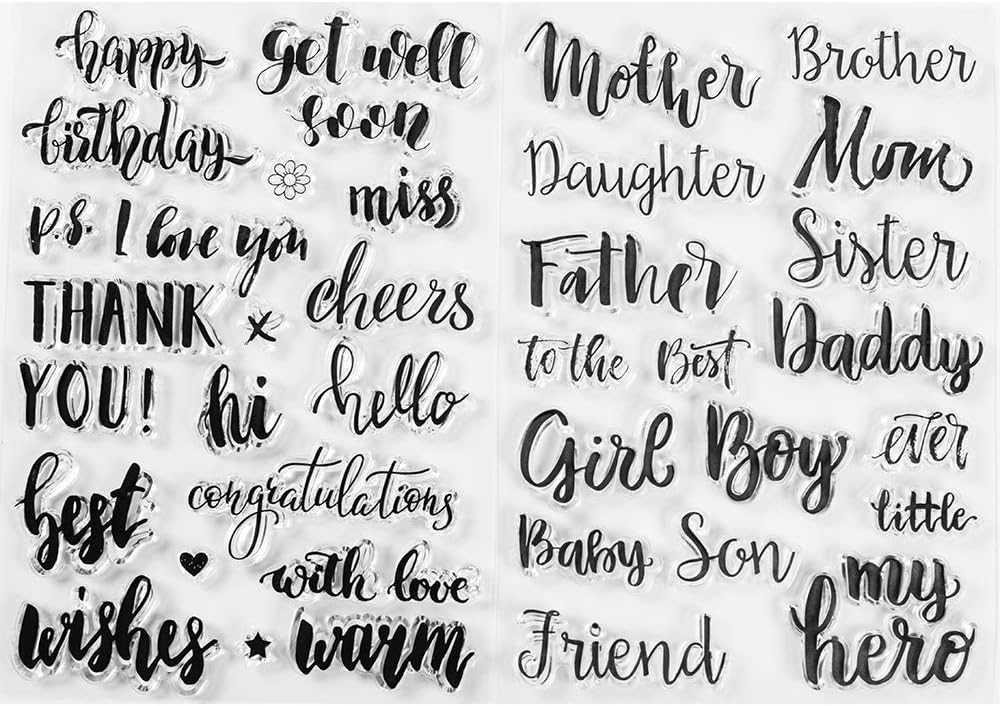 happy
birthday
get well
soon
miss
p.s. I love you
THANK
YOU!
cheers
hi
hello
best
congratulations
with love
wishes
warm
Mother
Brother
Daughter
Mom
Father
Sister
to the Best
Daddy
Girl
Boy
ever
little
Baby
Son
my
hero
Friend